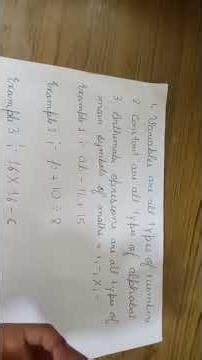 1. Variables are all types of numbers
2 Constant are all type of alphabet
3. Arithmatic expressions are all type of
main symbols of maths = +, -, × ÷
Example 1 ; 
Example 2 ; p + 10 ÷ 8
Example 3 ; 16 × 16 - c